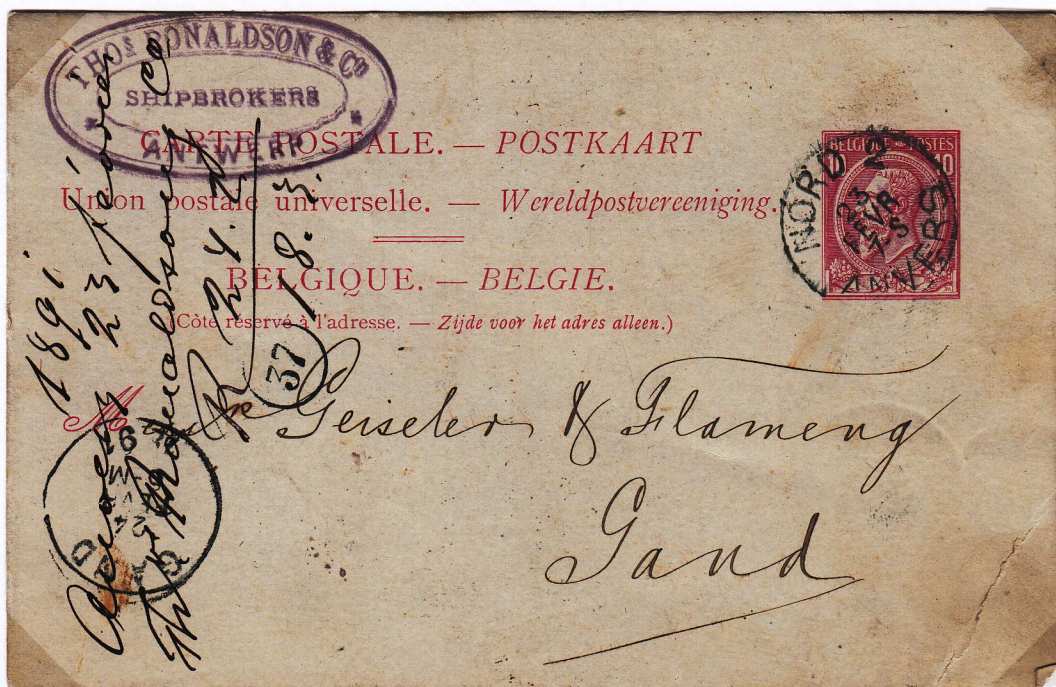 THOS RONALDSON & CO
SHIPBROKERS
ANTWERP
CARTE POSTALE. — POSTKAART
Union postale universelle. — Wereldpostvereeniging.
BELGIQUE. — BELGIE.
(Côté réservé à l'adresse. — Zijde voor het adres alleen.)
BELGIQUE POSTES
10 10
NORD 2
23
FEVR
7-S
ANVERS
M
Geiseler & Flameng
Gand
37
1891
Anvers 23 février
Th Ronaldson & Co
R 24.2.
18.3.
24
GAND